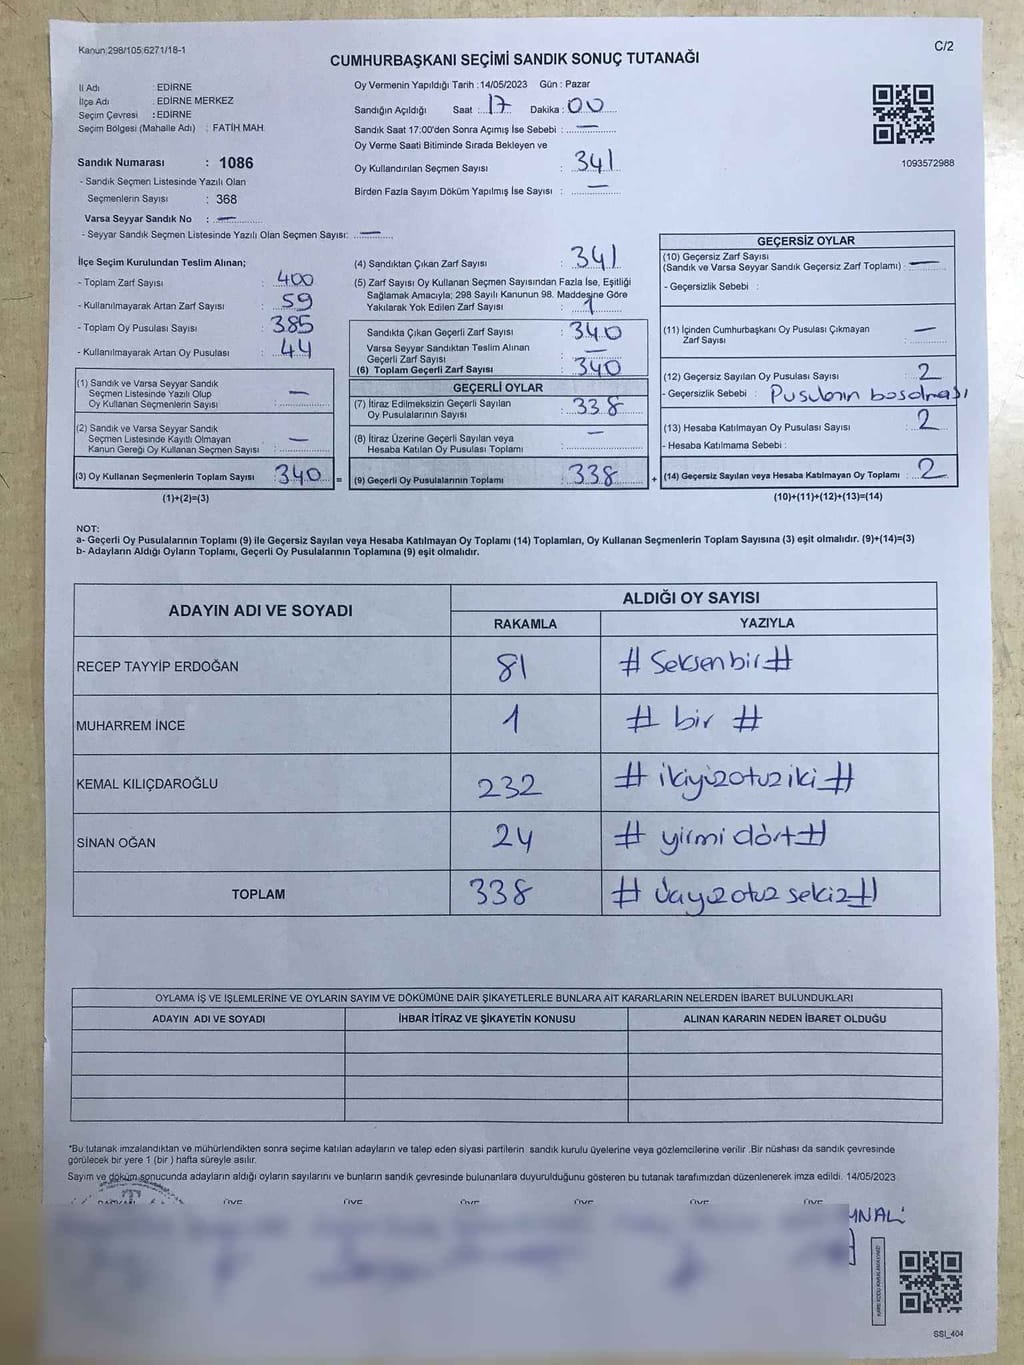 Kanun:298/105;6271/18-1
C/2
CUMHURBAŞKANI SEÇİMİ SANDIK SONUÇ TUTANAĞI
İl Adı : EDİRNE
İlçe Adı : EDİRNE MERKEZ
Seçim Çevresi : EDİRNE
Seçim Bölgesi (Mahalle Adı) : FATİH MAH.
Sandık Numarası : 1086
- Sandık Seçmen Listesinde Yazılı Olan
Seçmenlerin Sayısı : 368
Varsa Seyyar Sandık No : —
- Seyyar Sandık Seçmen Listesinde Yazılı Olan Seçmen Sayısı: —
Oy Vermenin Yapıldığı Tarih : 14/05/2023 Gün : Pazar
Sandığın Açıldığı Saat : 17 Dakika : 00
Sandık Saat 17:00'den Sonra Açımış İse Sebebi : —
Oy Verme Saati Bitiminde Sırada Bekleyen ve
Oy Kullandırılan Seçmen Sayısı : 341
Birden Fazla Sayım Döküm Yapılmış İse Sayısı : —
1093572988
İlçe Seçim Kurulundan Teslim Alınan;
- Toplam Zarf Sayısı : 400
- Kullanılmayarak Artan Zarf Sayısı : 59
- Toplam Oy Pusulası Sayısı : 385
- Kullanılmayarak Artan Oy Pusulası : 44
(1) Sandık ve Varsa Seyyar Sandık
Seçmen Listesinde Yazılı Olup
Oy Kullanan Seçmenlerin Sayısı : —
(2) Sandık ve Varsa Seyyar Sandık
Seçmen Listesinde Kayıtlı Olmayan
Kanun Gereği Oy Kullanan Seçmen Sayısı : —
(3) Oy Kullanan Seçmenlerin Toplam Sayısı : 340 =
(1)+(2)=(3)
(4) Sandıktan Çıkan Zarf Sayısı : 341
(5) Zarf Sayısı Oy Kullanan Seçmen Sayısından Fazla İse, Eşitliği
Sağlamak Amacıyla; 298 Sayılı Kanunun 98. Maddesine Göre
Yakılarak Yok Edilen Zarf Sayısı : 1
Sandıkta Çıkan Geçerli Zarf Sayısı : 340
Varsa Seyyar Sandıktan Teslim Alınan
Geçerli Zarf Sayısı : —
(6) Toplam Geçerli Zarf Sayısı : 340
GEÇERLİ OYLAR
(7) İtiraz Edilmeksizin Geçerli Sayılan
Oy Pusulalarının Sayısı : 338
(8) İtiraz Üzerine Geçerli Sayılan veya
Hesaba Katılan Oy Pusulası Toplamı : —
(9) Geçerli Oy Pusulalarının Toplamı : 338 +
GEÇERSİZ OYLAR
(10) Geçersiz Zarf Sayısı
(Sandık ve Varsa Seyyar Sandık Geçersiz Zarf Toplamı) : —
- Geçersizlik Sebebi :
(11) İçinden Cumhurbaşkanı Oy Pusulası Çıkmayan
Zarf Sayısı : —
(12) Geçersiz Sayılan Oy Pusulası Sayısı : 2
- Geçersizlik Sebebi : Pusulanın boş olması
(13) Hesaba Katılmayan Oy Pusulası Sayısı : 2
- Hesaba Katılmama Sebebi :
(14) Geçersiz Sayılan veya Hesaba Katılmayan Oy Toplamı : 2
(10)+(11)+(12)+(13)=(14)
NOT:
a- Geçerli Oy Pusulalarının Toplamı (9) ile Geçersiz Sayılan veya Hesaba Katılmayan Oy Toplamı (14) Toplamları, Oy Kullanan Seçmenlerin Toplam Sayısına (3) eşit olmalıdır. (9)+(14)=(3)
b- Adayların Aldığı Oyların Toplamı, Geçerli Oy Pusulalarının Toplamına (9) eşit olmalıdır.
ADAYIN ADI VE SOYADI ALDIĞI OY SAYISI
RAKAMLA YAZIYLA
RECEP TAYYİP ERDOĞAN 81 # Seksenbir #
MUHARREM İNCE 1 # bir #
KEMAL KILIÇDAROĞLU 232 # ikiyüzotuziki #
SİNAN OĞAN 24 # yirmi dört #
TOPLAM 338 # üçyüzotuz sekiz #
OYLAMA İŞ VE İŞLEMLERİNE VE OYLARIN SAYIM VE DÖKÜMÜNE DAİR ŞİKAYETLERLE BUNLARA AİT KARARLARIN NELERDEN İBARET BULUNDUKLARI
ADAYIN ADI VE SOYADI İHBAR İTİRAZ VE ŞİKAYETİN KONUSU ALINAN KARARIN NEDEN İBARET OLDUĞU
*Bu tutanak imzalandıktan ve mühürlendikten sonra seçime katılan adayların ve talep eden siyasi partilerin sandık kurulu üyelerine veya gözlemcilerine verilir .Bir nüshası da sandık çevresinde
görülecek bir yere 1 (bir ) hafta süreyle asılır.
Sayım ve döküm sonucunda adayların aldığı oyların sayılarını ve bunların sandık çevresinde bulunanlara duyurulduğunu gösteren bu tutanak tarafımızdan düzenlenerek imza edildi. 14/05/2023
ÜYE ÜYE ÜYE ÜYE ÜYE ÜYE
SSİ_404